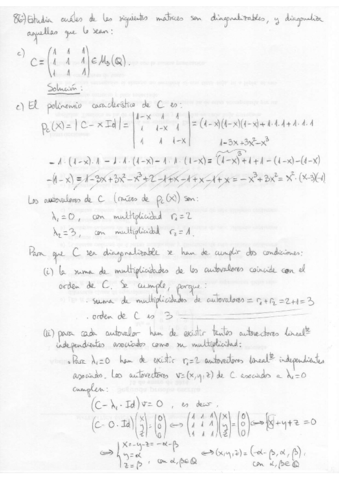 86) Estudia cuáles de las siguientes matrices son diagonalizables, y diagonaliza
aquellas que lo sean:
c)
C = (1 1 1
1 1 1
1 1 1) ∈ M₃(ℚ).
Solución:
c) El polinomio característico de C es:
p_c(X) = |C - x Id| = |1-x 1 1
1 1-x 1
1 1 1-x| = (1-x)(1-x)(1-x)+1·1·1+1·1·1
1-3x+3x²-x³
-1·(1-x)·1 - 1·1·(1-x) - 1·1(1-x) = (1-x)³+1+1-(1-x)-(1-x)
-(1-x) = 1-3x+3x²-x³+2-1+x-1+x-1+x = -x³+3x² = x²·(x-3)(-1)
Los autovalores de C (raíces de p_c(X)) son:
λ₁=0, con multiplicidad r₁=2
λ₂=3, con multiplicidad r₂=1.
Para que C sea diagonalizable se han de cumplir dos condiciones:
(i) la suma de multiplicidades de los autovalores coincide con el
orden de C. Se cumple, porque:
· suma de multiplicidades de autovalores = r₁+r₂ = 2+1 = 3
· orden de C es 3
(ii) para cada autovalor han de existir tantos autovectores lineal^te
independientes asociados como su multiplicidad:
· Para λ₁=0 han de existir r₁=2 autovectores lineal^te independientes
asociados. Los autovectores v=(x,y,z) de C asociados a λ₁=0
cumplen:
(C-λ₁·Id)v = 0, es decir
(C-0·Id)(x y z) = (0 0 0) ⟺ (1 1 1
1 1 1
1 1 1)(x y z) = (0 0 0) ⟺ x+y+z = 0
⟺ { x=-y-z=-α-β
y=α
z=β, con α,β∈ℚ
⟺ (x,y,z) = (-α-β, α, β),
con α,β∈ℚ